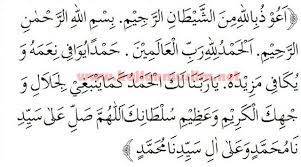 ﴿اَعُوْذُ بِاللّٰهِ مِنَ الشَّيْطَانِ الرَّجِيْمِ. بِسْمِ اللّٰهِ الرَّحْمٰنِ
الرَّحِيْمِ. اَلْحَمْدُ لِلّٰهِ رَبِّ الْعَالَمِيْنَ. حَمْدًا يُوَافِى نِعَمَهُ وَ
يُكَافِى مَزِيْدَهُ. يَارَبَّنَا لَكَ الْحَمْدُ كَمَا يَنْبَغِى لِجَلَالِ وَ
جْهِكَ الْكَرِيْمِ وَعَظِيْمِ سُلْطَانِكَ اَللّٰهُمَّ صَلِّ عَلٰى سَيِّدِ
نَا مُحَمَّدٍ وَعَلٰى اٰلِ سَيِّدِنَا مُحَمَّدٍ﴾